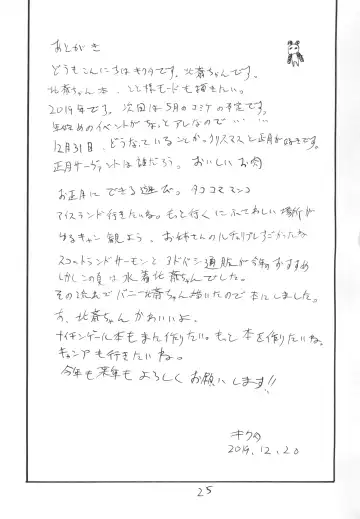 あとがき
どうもこんにちはキクタです。北斎ちゃんです。
北斎ちゃん本、とと様モードも描きたい。
2019年です。次回は5月のコミケの予定です。
年始めのイベントがちょっとアレなので・・・
12月31日、どうなっていることか。クリスマスと正月が好きです。
正月サーヴァントは誰だろう。おいしいお肉
お正月にできる遊び。タココマ
アイスランド行きたいね。もっと行くにふさわしい場所が
ゆるキャン観よう、お姉さんの
スコットランドサーモンと 通販が今年のおすすめ
しかしこの夏は水着北斎ちゃんでした。
その流れでバニー北斎ちゃん描いたので本にしました。
す、北斎ちゃんかわいいよ。
ナイチンゲール本もまた作りたい。もっと本を作りたいね。
キュンアも行きたいね。
今年も来年もよろしくお願いします!!
キクタ
2019.12.20
25